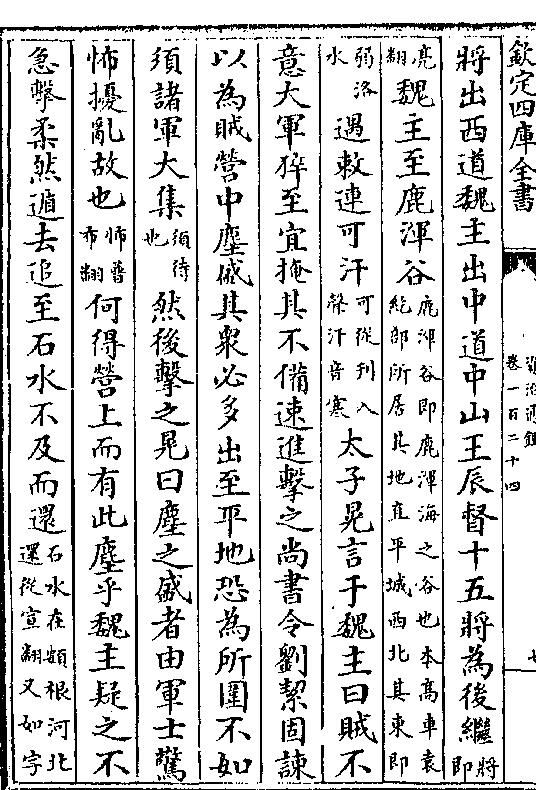 欽定四庫全書
資治通鑑
卷一百二十四
將出西道魏主出中道中山王辰督十五將為後繼將即
亮翻魏主至鹿渾谷鹿渾谷即鹿渾海之谷也本高車袁紇部所居其地直平城西北其東即
弱洛水遇敕連可汗可從刋入聲汗音寒太子晃言于魏主曰賊不
意大軍猝至宜掩其不備速進擊之尚書令劉絜固諫
以為賊營中塵盛其衆必多出至平地恐為所圍不如
須諸軍大集須待也然後擊之晃曰塵之盛者由軍士驚
怖擾亂故也怖普布翻何得營上而有此塵乎魏主疑之不
急擊柔然遁去追至石水不及而還石水在頞根河北還從宣翻又如字